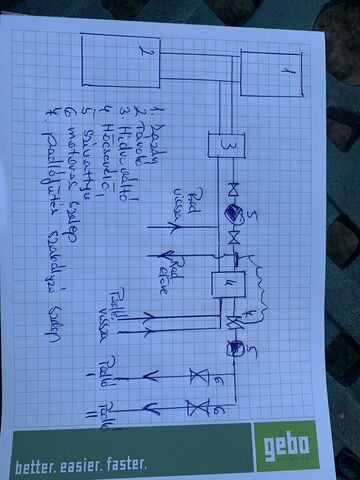 1
2
3
4
5
5
6
6
7
1. Kazán
2 Tároló
3. Hidrováltó
4 Hőcserélő
5 Szivattyú
6 motoros szelep
7. padlófűtés szabályzó szelep
Rad
vissza
Rad
előre
Padló
vissza
Padló
I
Padló
II
gebo
better. easier. faster.